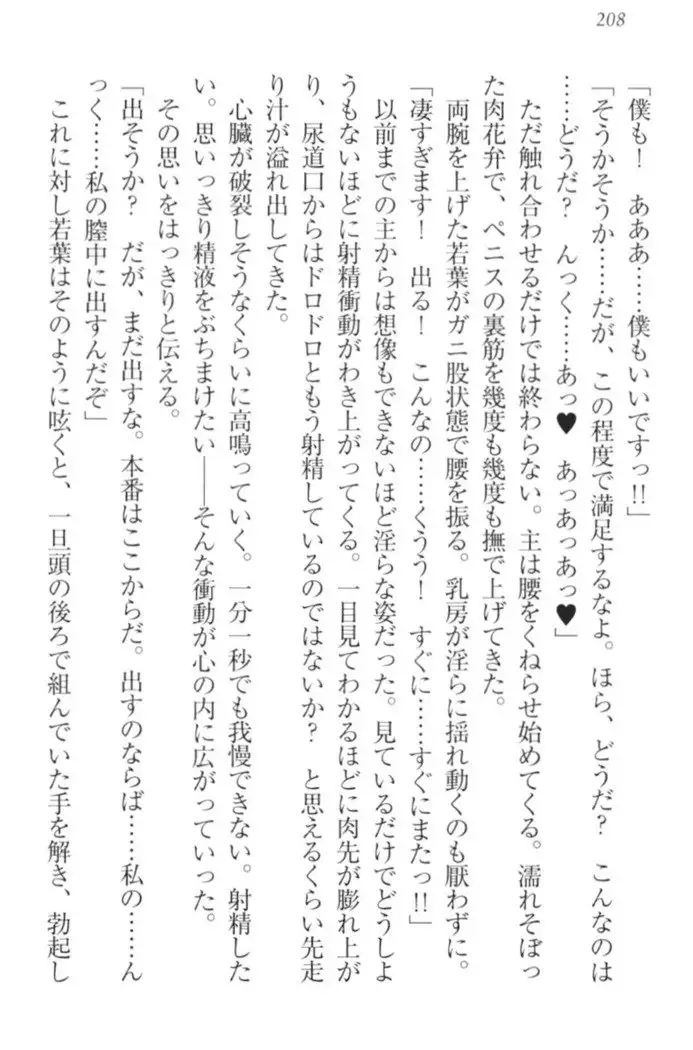 208
「僕も！　あああ……僕もいいですっ!!」
「そうかそうか……だが、この程度で満足するなよ。ほら、どうだ？　こんなのは
……どうだ？　んっく……あっ♥　あっあっあっ♥」
　ただ触れ合わせるだけでは終わらない。主は腰をくねらせ始めてくる。濡れそぼっ
た肉花弁で、ペニスの裏筋を幾度も幾度も撫で上げてきた。
　両腕を上げた若葉がガニ股状態で腰を振る。乳房が淫らに揺れ動くのも厭わずに。
「凄すぎます！　出る！　こんなの……くうう！　すぐに……すぐにまたっ!!」
　以前までの主からは想像もできないほど淫らな姿だった。見ているだけでどうしよ
うもないほどに射精衝動がわき上がってくる。一目見てわかるほどに肉先が膨れ上が
り、尿道口からはドロドロともう射精しているのではないか？　と思えるくらい先走
り汁が溢れ出してきた。
　心臓が破裂しそうなくらいに高鳴っていく。一分一秒でも我慢できない。射精した
い。思いっきり精液をぶちまけたい――そんな衝動が心の内に広がっていった。
　その思いをはっきりと伝える。
「出そうか？　だが、まだ出すな。本番はここからだ。出すのならば……私の……ん
っく……私の膣中に出すんだぞ」
　これに対し若葉はそのように呟くと、一旦頭の後ろで組んでいた手を解き、勃起し